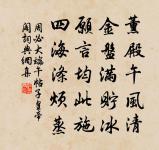 薰殿午風清
金盤滿貯冰
願言均此施
四海滌煩蒸
周必大端午帖子皇帝
閣詞典網集